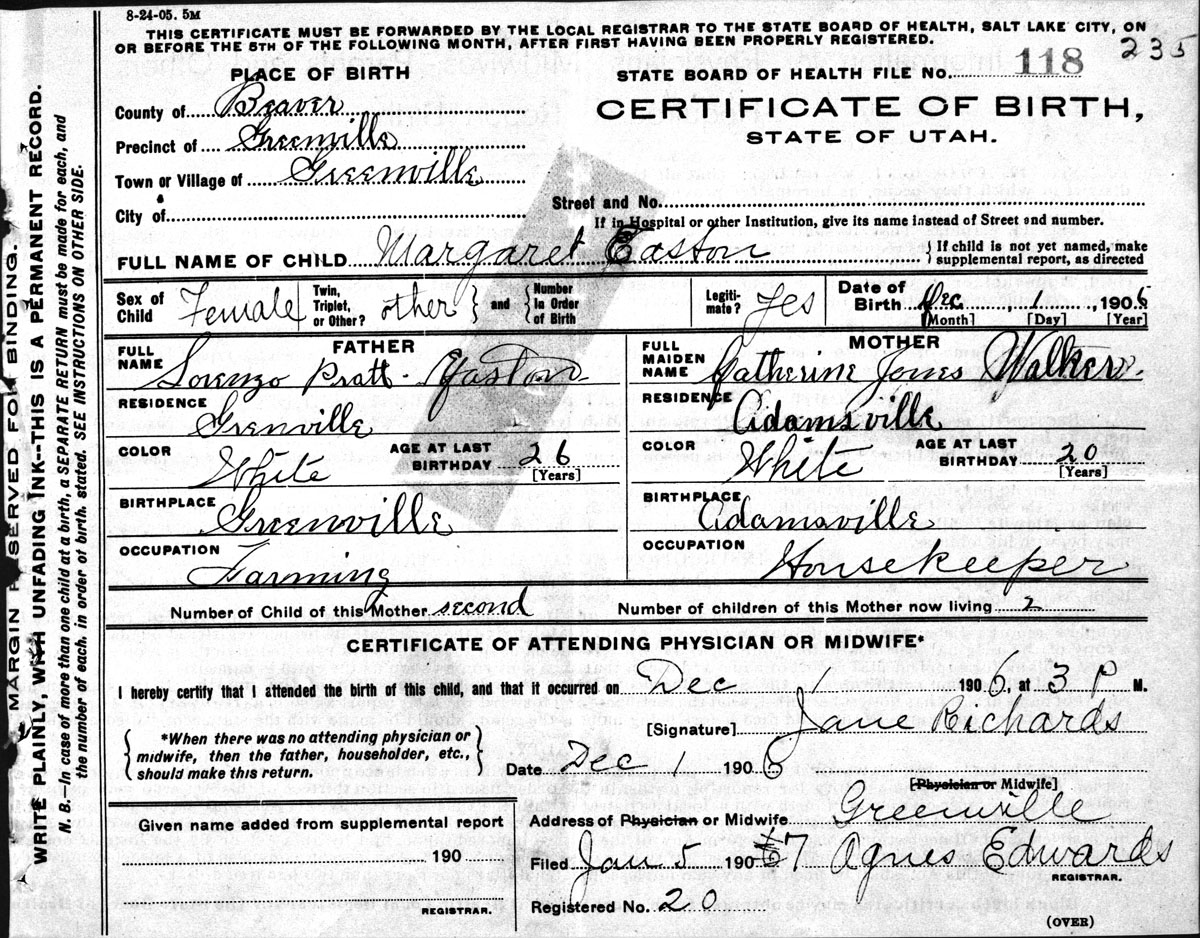 8-24-05. 5M
THIS CERTIFICATE MUST BE FORWARDED BY THE LOCAL REGISTRAR TO THE STATE BOARD OF HEALTH, SALT LAKE CITY, ON
OR BEFORE THE 5TH OF THE FOLLOWING MONTH, AFTER FIRST HAVING BEEN PROPERLY REGISTERED.
235
PLACE OF BIRTH
STATE BOARD OF HEALTH FILE No. 118
County of Beaver
CERTIFICATE OF BIRTH,
STATE OF UTAH.
Precinct of Greenville
Town or Village of Greenville
Street and No.
City of
If in Hospital or other Institution, give its name instead of Street and number.
FULL NAME OF CHILD Margaret Easton
{ If child is not yet named, make
supplemental report, as directed
Sex of Child Female
Twin, Triplet, or Other? other } and { Number in Order of Birth
Legitimate? Yes
Date of Birth Dec 1, 1906
[Month] [Day] [Year]
FATHER
MOTHER
FULL NAME Lorenzo Pratt Easton
FULL MAIDEN NAME Catherine Jones Walker.
RESIDENCE Grenville
RESIDENCE Adamsville
COLOR White AGE AT LAST BIRTHDAY 26 [Years]
COLOR White AGE AT LAST BIRTHDAY 20 [Years]
BIRTHPLACE Greenville
BIRTHPLACE Adamsville
OCCUPATION Farming
OCCUPATION Housekeeper
Number of Child of this Mother second
Number of children of this Mother now living 2
CERTIFICATE OF ATTENDING PHYSICIAN OR MIDWIFE*
I hereby certify that I attended the birth of this child, and that it occurred on Dec 1 1906, at 3 P M.
[Signature] Jane Richards
{ *When there was no attending physician or
midwife, then the father, householder, etc.,
should make this return. }
Date Dec 1 1906
[Physician or Midwife]
Given name added from supplemental report
190
REGISTRAR.
Address of Physician or Midwife Greenville
Filed Jan 5 1907 Agnes Edwards
REGISTRAR.
Registered No. 20
(OVER)
MARGIN RESERVED FOR BINDING.
WRITE PLAINLY, WITH UNFADING INK--THIS IS A PERMANENT RECORD.
N. B.—In case of more than one child at a birth, a SEPARATE RETURN must be made for each, and
the number of each, in order of birth, stated. SEE INSTRUCTIONS ON OTHER SIDE.